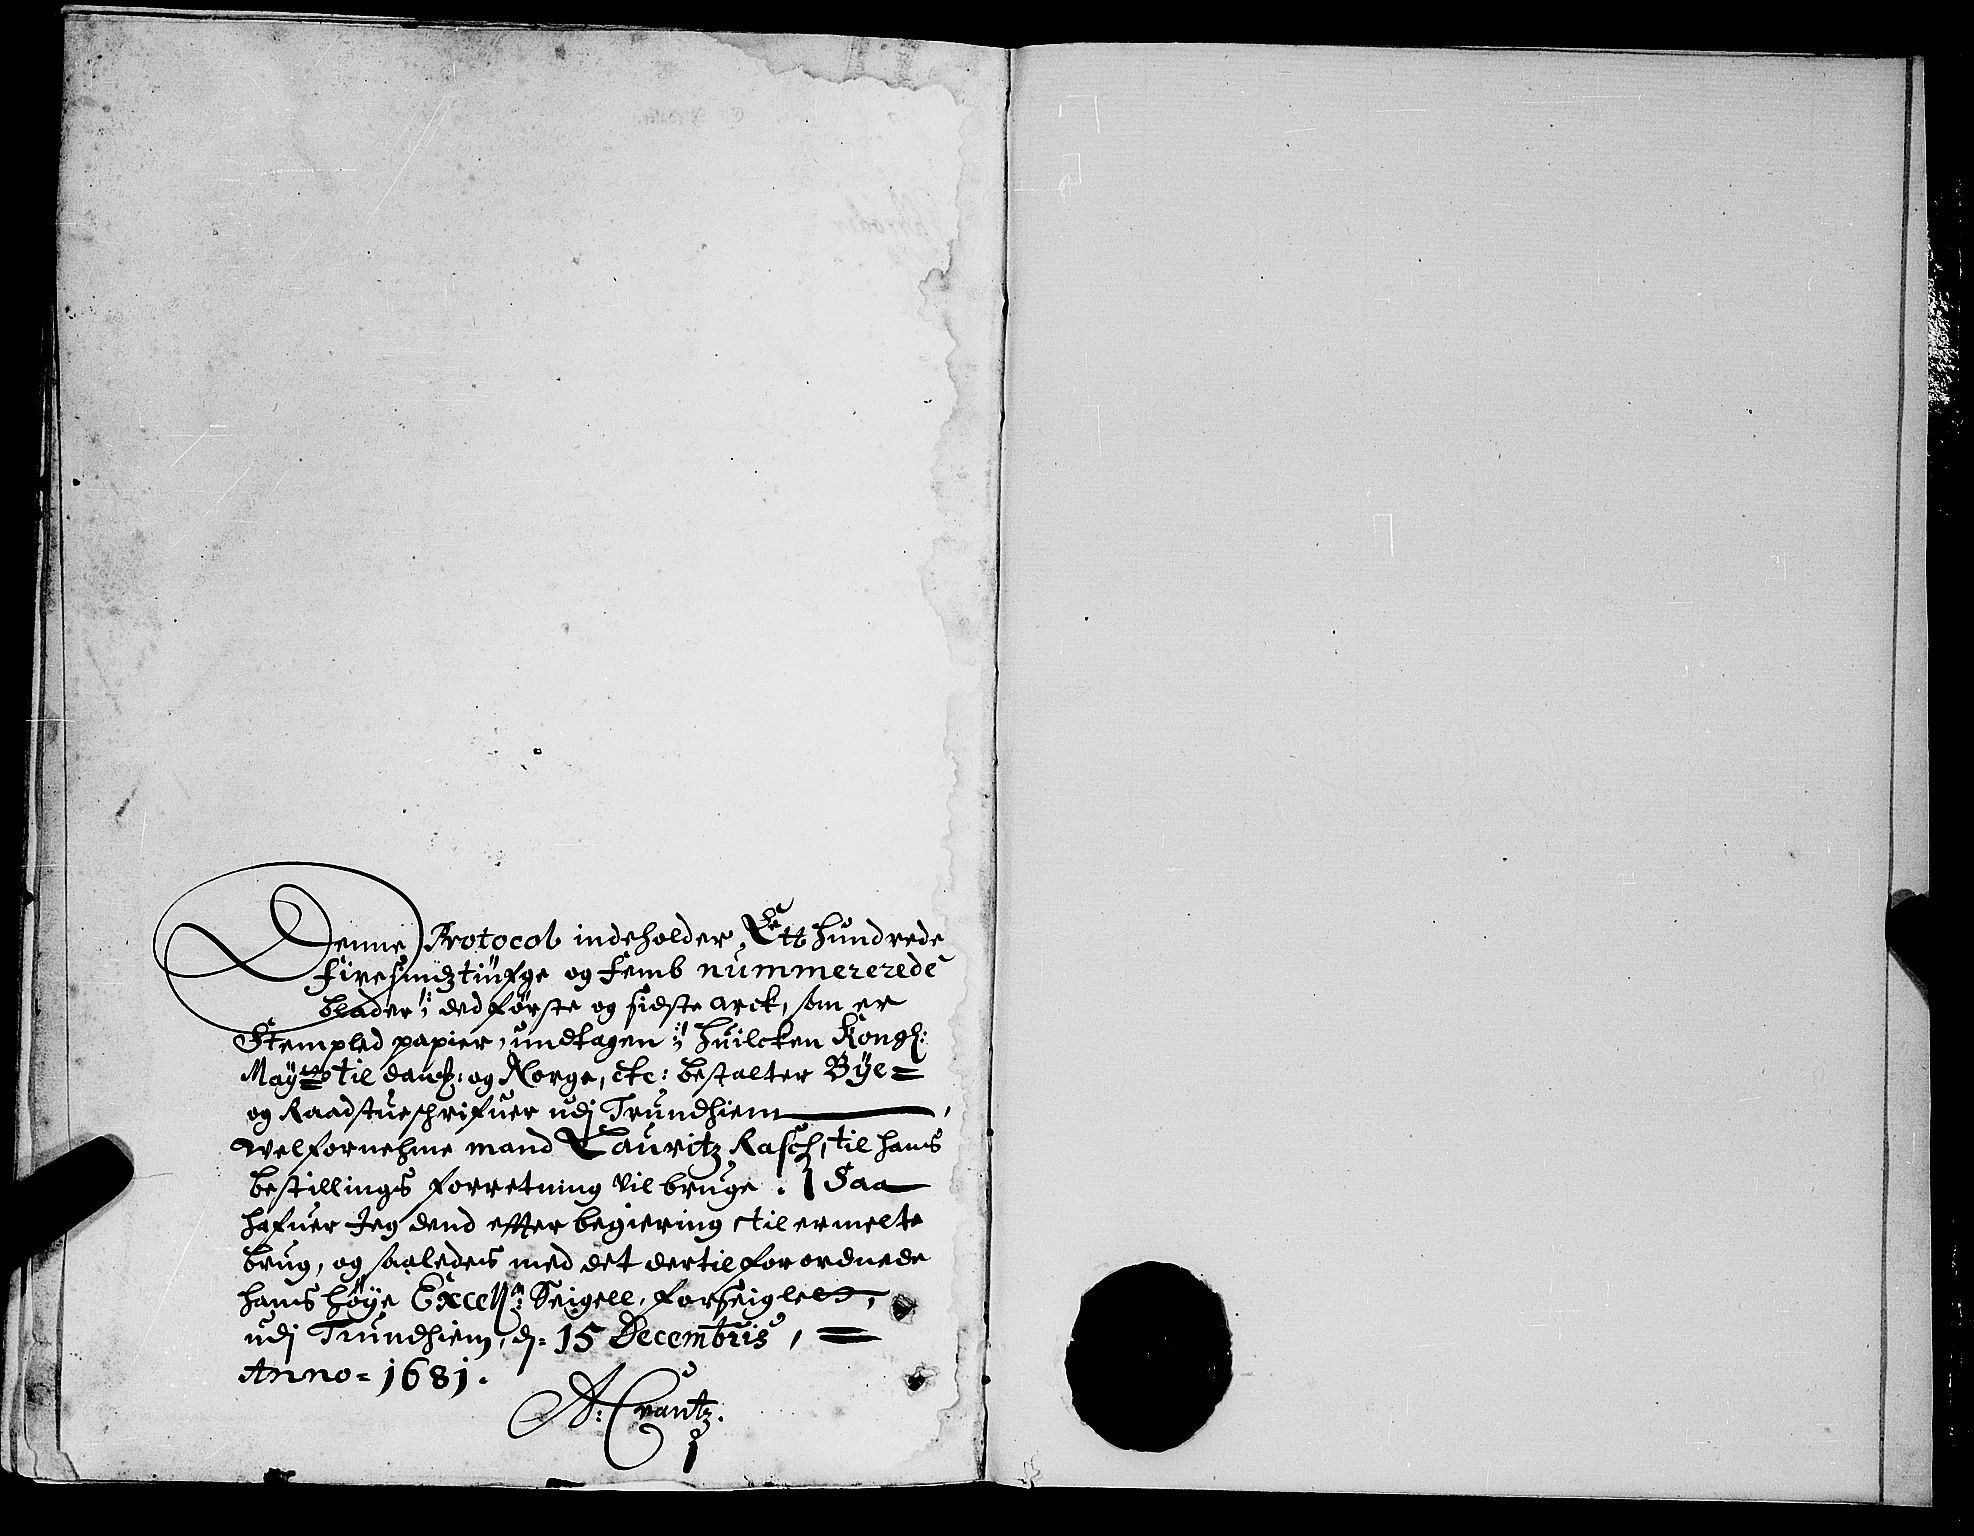 Denne Protocol indeholder Ett hundrede
Firesindztiufge og Femb nummererede
blader /: ded første og sidste arck, som er
Stempled papier, undtagen :/ huilcken Kongl:
Mayts til dank: og Norge, etc: bestalter Bÿe=
og Raadstueschrifuer udj Trundhiem
welfornehme mand Lauritz Rasch, til hans
bestillings forretning vil bruge. Saa
hafuer Jeg dend effter begiering til ermelte
brug, og saaledes med det dertil forordnede
hans høÿe Excellm: Seigell, forseiglet,
udj Trundhiem, d: 15 Decembris,
Anno = 1681.
A: Crantz.